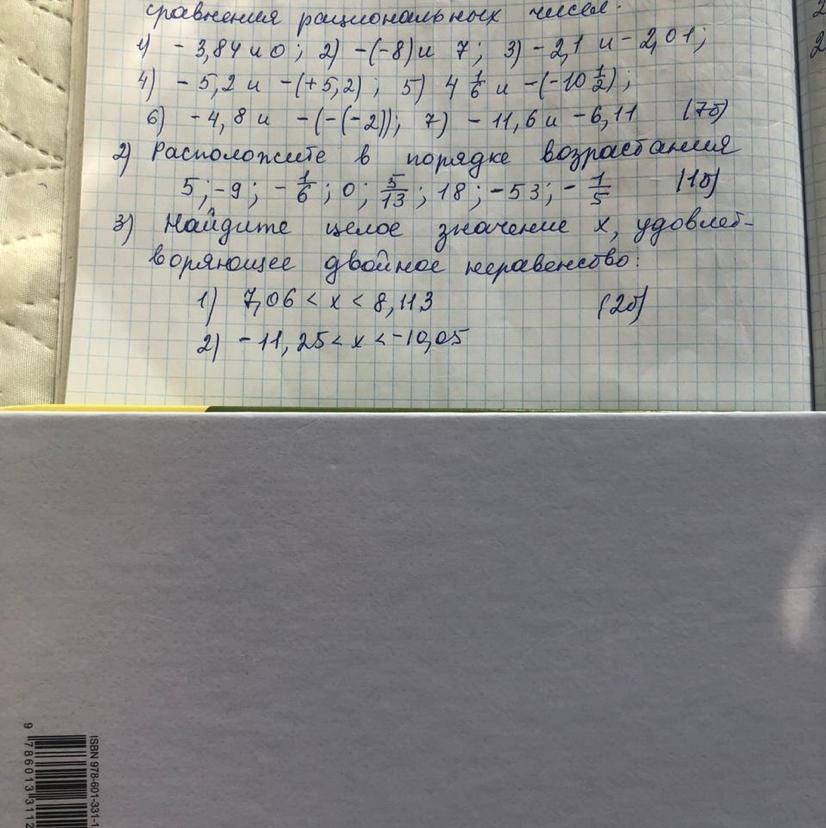 сравнения рациональных чисел:
1) - 3,84 и 0; 2) -(-8) и 7; 3) - 2,1 и - 2,01;
4) - 5,2 и -(+5,2); 5) 4 1/6 и -(-10 1/2);
6) - 4,8 и -(-(-2)); 7) - 11,6 и - 6,11 (7б)
2) Расположите в порядке возрастания
5; -9; - 1/6; 0; 5/13; 18; -53; - 1/5 (1б)
3) Найдите целое значение х, удовлет-
воряющее двойное неравенство:
1) 7,06 < x < 8,113 (2б)
2) - 11,25 < x < -10,05
ISBN 978-601-331-1
9 786013 3112